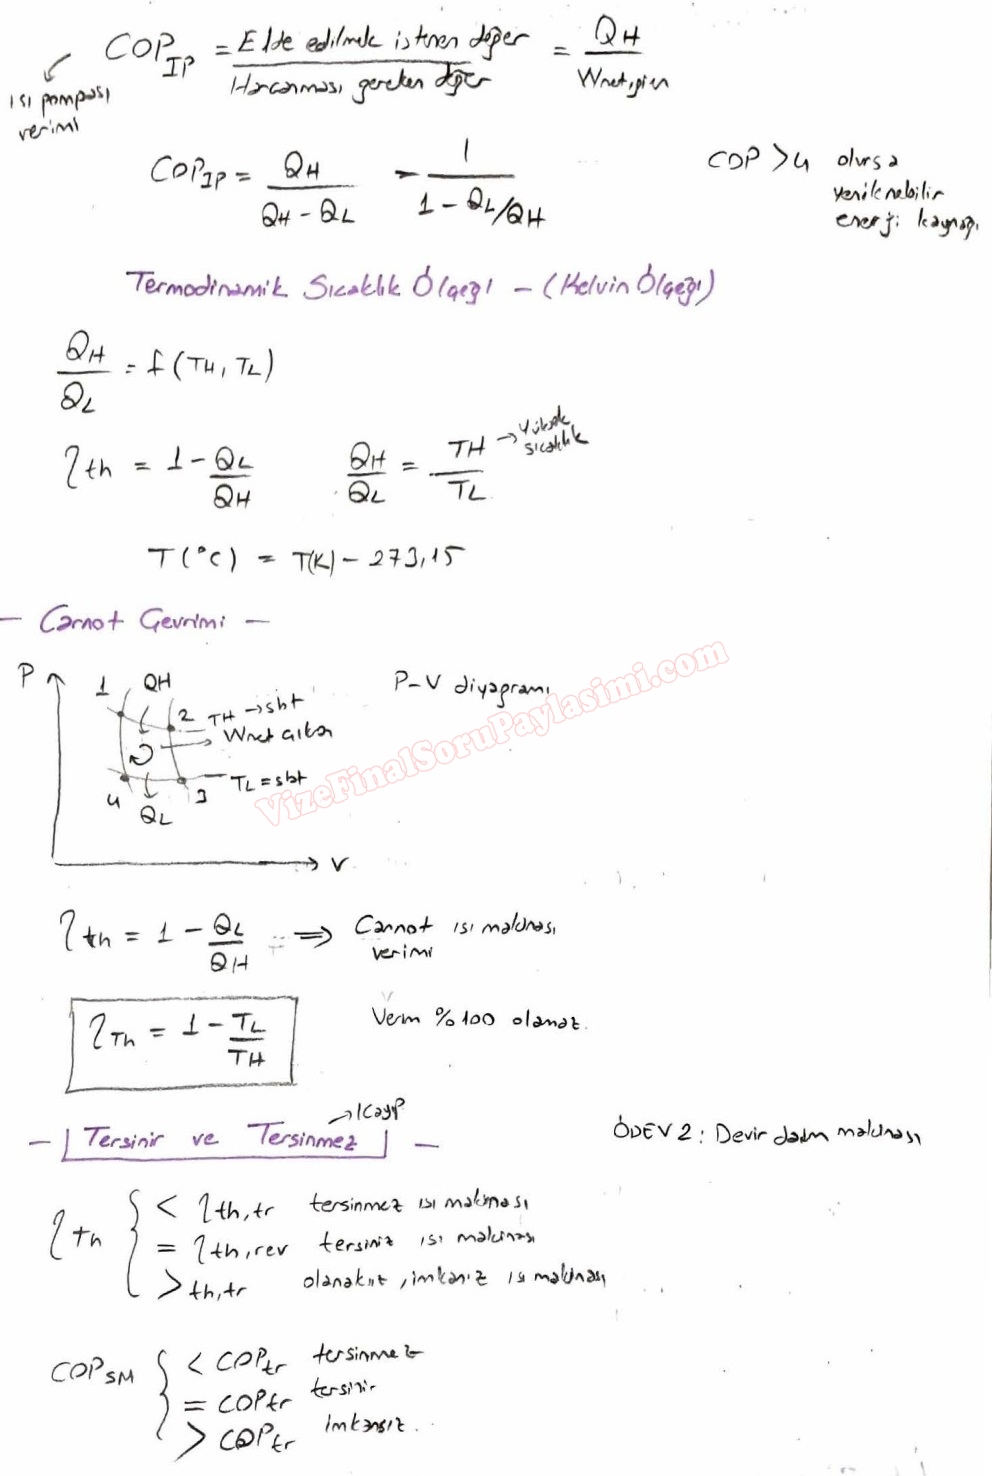 COP_IP = Elde edilmek istenen değer / Harcanması gereken değer = QH / Wnet,giren
ısı pompası
verimi
COP_IP = QH / QH - QL = 1 / 1 - QL/QH
COP > 4 olursa
yenilenebilir
enerji kaynağı
Termodinamik Sıcaklık Ölçeği - (Kelvin Ölçeği)
QH / QL = f (TH, TL)
ηth = 1 - QL / QH
QH / QL = TH / TL → Yüksek
sıcaklık
T(°C) = T(K) - 273,15
- Carnot Çevrimi -
P
1 QH
P-V diyagramı
2 TH → sbt
Wnet çıkan
TL = sbt
4
3
QL
V
VizeFinalSoruPaylasimi.com
ηth = 1 - QL / QH ⇒ Carnot ısı makinası
verimi
ηTh = 1 - TL / TH
Verim %100 olamaz.
→ Kayıp
- Tersinir ve Tersinmez -
ÖDEV 2 : Devir daim makinası
ηth { < ηth,tr tersinmez ısı makinası
= ηth,rev tersinir ısı makinası
> th,tr olanaksız, imkansız ısı makinası
COP_SM { < COPtr tersinmez
= COPtr tersinir
> COPtr imkansız.